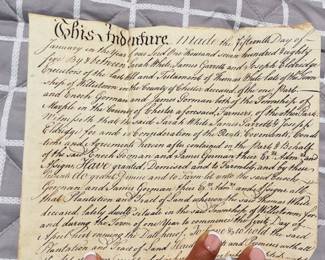 This Indenture made the Fifteenth Day of
January in the Year of our Lord One thousand seven hundred Eighty
Five By & between Sarah Whele James Garrett and Joseph Eldridge
Executors of the last Will and Testament of Thomas Whele late of the Town
ship of Willistown in the County of Chester deceased of the one Part
and Enoch Gorman and James Gorman both of the Township of
in the County of Chester aforesaid Farmers, of the other Part
Witnesseth that the said Sarah Whele James Garrett & Joseph
Eldridge for and in Consideration of the Rents Covenants Condi
tions and Agreements herein after contained on the Part & Behalf
of the said Enoch Gorman and James Gorman their
Have granted Demised and to Farm let and by these
Presents do grant Demise and to Farm let unto the said Enoch
Gorman and James Gorman their and Assigns all
that Plantation and Tract of Land whereon the said Thomas Whele
deceased lately dwelt Situate in the said Township of Willistown for
and during the Term of one Year to commence the first Day of
April next ensuing the Date hereof To have & to hold the said
Plantation and Tract of Land